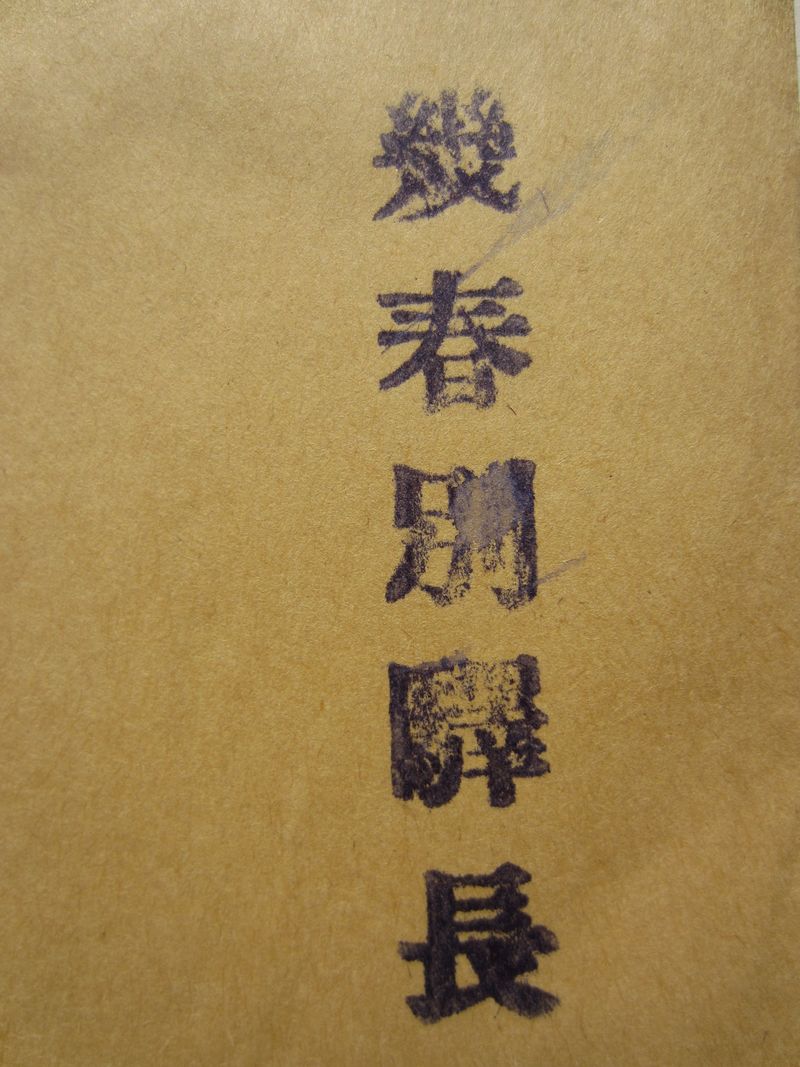 幾春別驛長